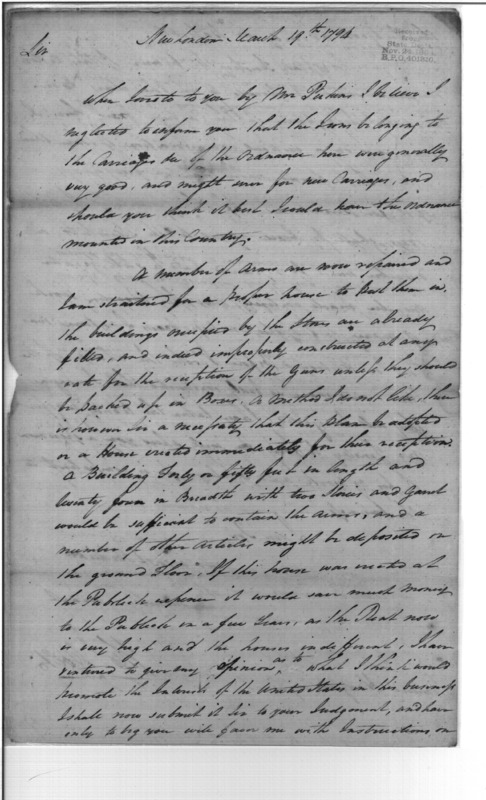 New London March 19th 1794
Sir
When I wrote to you by Mr Perkins I believe I
neglected to inform you that the Irons belonging to
the Carriages &c of the Ordnance here were generally
very good, and might serve for new Carriages, and
should you think it best I could have the Ordnance
mounted in this Country.
A number of Arms are now repaired and
I am straitened for a proper house to Put them in.
the buildings occupied by the Stores are already
filled, and indeed improperly constructed at any
rate for the reception of the Guns unless they should
be packed up in Boxes, a Method I do not like, there
is however Sir a necessity that this Plan be adopted
or a House erected immediately for their reception.
a Building Forty or fifty feet in length and
twenty four in Breadth with two Stories and Garret
would be sufficient to contain the Arms, and a
number of other Articles might be deposited on
the ground Floor. If this house was erected at
the Publick expence it would save much money
to the Publick in a few Years, as the Rent now
is very high and the houses indifferent, I have
ventured to give my Opinion as to what I think would
promote the Interest of the United States in this business
I shall now submit it Sir to your Judgment, and have
only to beg you will favor me with Instructions on
State De
Nov.
R.P.O. 401810